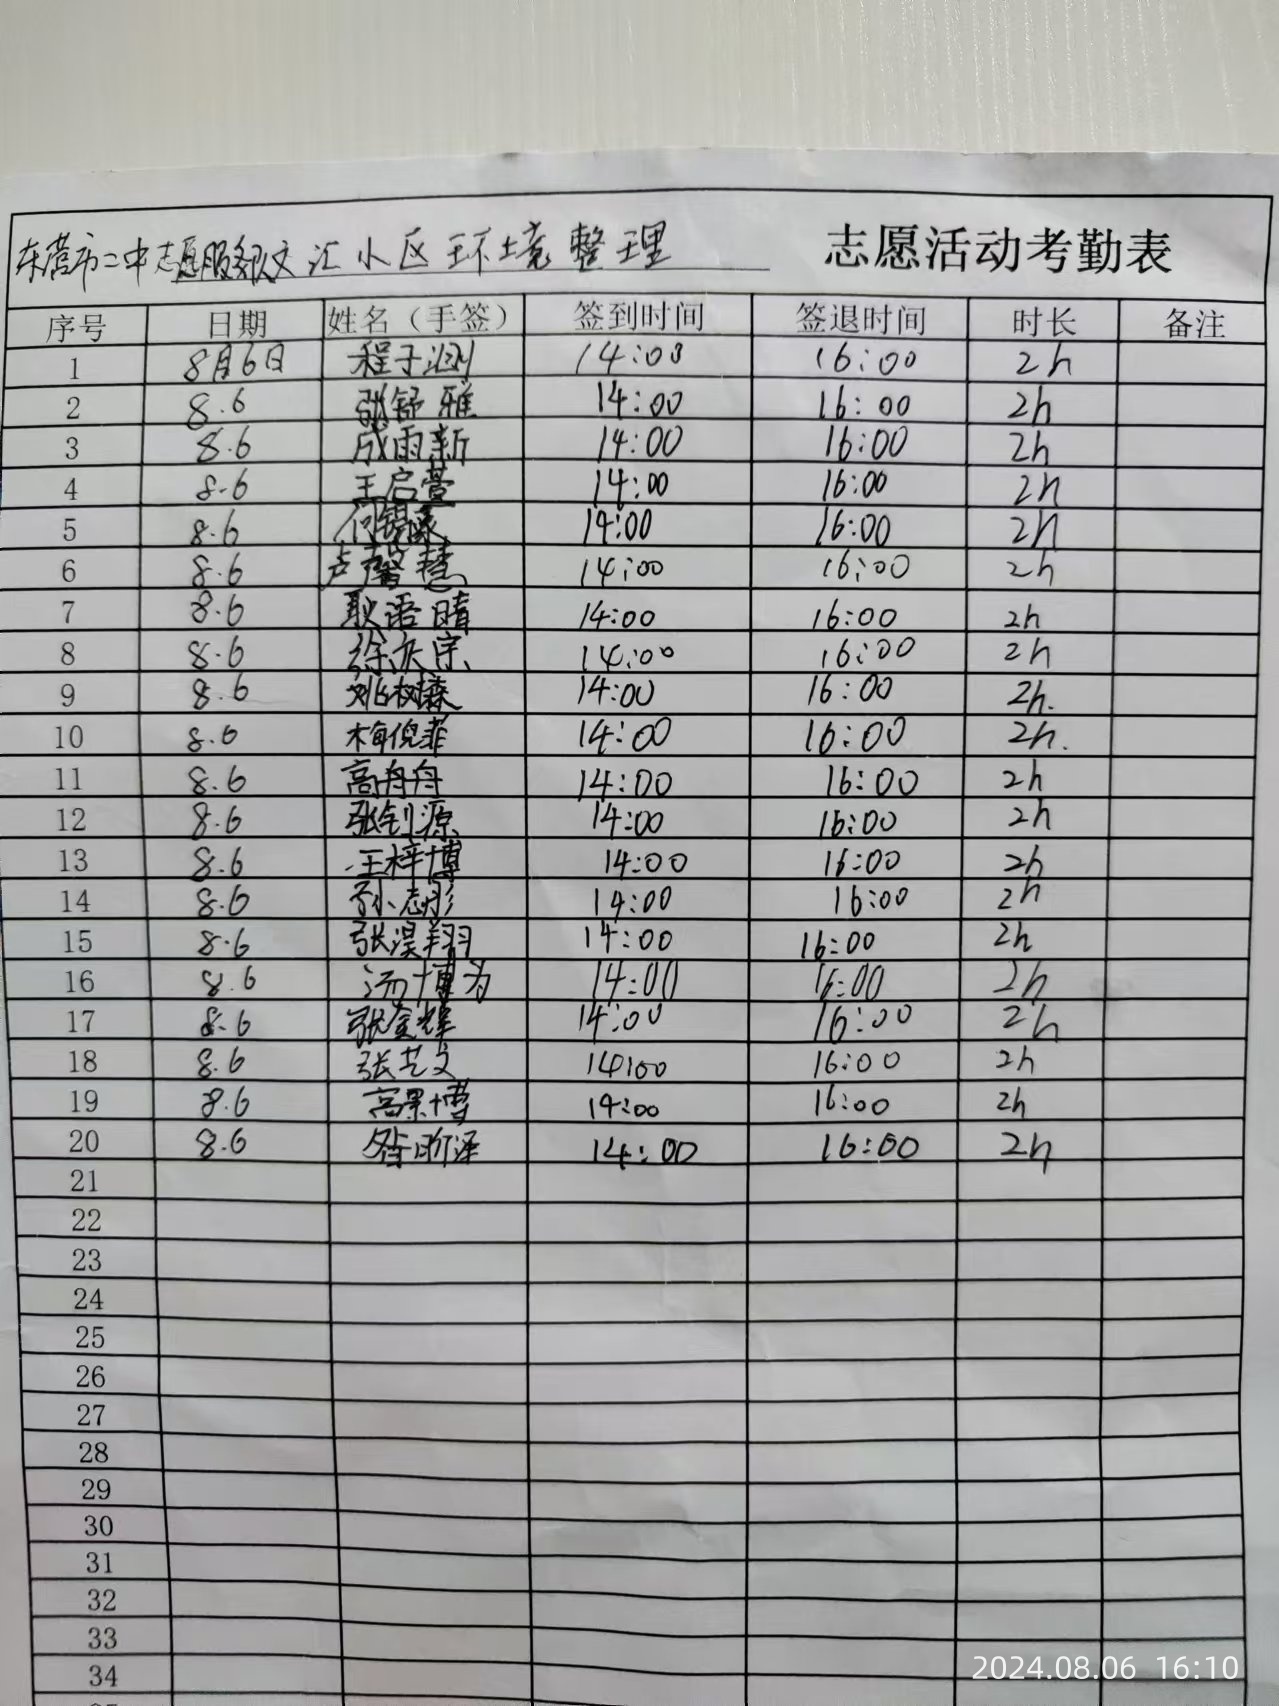 东营市二中志愿服务队文汇小区环境整理 志愿活动考勤表
序号 日期 姓名（手签） 签到时间 签退时间 时长 备注
1 8月6日 程子渊 14:00 16:00 2h
2 8.6 张舒雅 14:00 16:00 2h
3 8.6 成雨新 14:00 16:00 2h
4 8.6 王启萱 14:00 16:00 2h
5 8.6 14:00 16:00 2h
6 8.6 卢馨慧 14:00 16:00 2h
7 8.6 耿语晴 14:00 16:00 2h
8 8.6 徐庆宗 14:00 16:00 2h
9 8.6 14:00 16:00 2h.
10 8.6 梅倪菲 14:00 16:00 2h.
11 8.6 高舟舟 14:00 16:00 2h
12 8.6 张钊源 14:00 16:00 2h
13 8.6 王梓博 14:00 16:00 2h
14 8.6 孙志彤 14:00 16:00 2h
15 8.6 张淏翔 14:00 16:00 2h
16 8.6 汤博为 14:00 16:00 2h
17 8.6 张金辉 14:00 16:00 2h
18 8.6 张艺文 14:00 16:00 2h
19 8.6 高果博 14:00 16:00 2h
20 8.6 昝昕泽 14:00 16:00 2h
21
22
23
24
25
26
27
28
29
30
31
32
33
34
2024.08.06 16:10